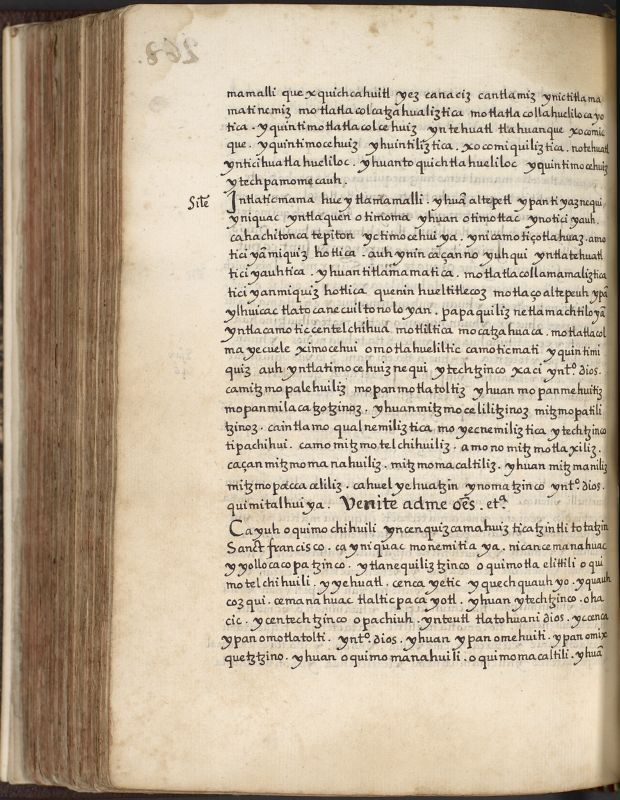 268.
mamalli que xquichcahuitl yez canaciz cantlamiz ynictitlama
matinemiz motlatlacolcatzahualiztica motlatlacollahuelilocayo
tica. yquintimotlatlacolcehuiz yntehuatl tlahuanque xocomic
que. yquintimocehuiz yhuintiliztica. xocomiquiliztica. notehuatl
ynticihuatlahueliloc. yhuantoquichtlahueliloc yquintimocehuiz
ytechpamomecauh.
Sitē Intlaticmama huey tlamamalli. yhuā altepetl ypantiyaznequi
yniquac yntlaquēn otimoma yhuan otimotlac ynotiçiyauh
cahachitonca tepiton yctimocehuiya. ynicamotiçotlahuaz. amo
ticiyāmiquiz hotlica. auh ynin caçanno yuhqui yntlatehuatl
ticiyauhtica. yhuantitlamamatica. motlatlacollamamaliztica
ticiyanmiquiz hotlica quenin hueltitlecoz motlaçoaltepeuh ypā
ylhuicac tlatocanecuiltonoloyan. papaquiliz netlamachtiloyā
yntlacamo ticcentelchihua motliltica mocatzahuaca. motlatlacol
ma yecuele ximocehui omotlahueliltic camoticmati yquintimi
quiz auh yntlatimocehuiznequi ytechtzinco xaci ynto dios.
camitzmopalehuiliz mopanmotlatoltiz yhuan mopanmehuitiz
mopanmilacatzotzinoz. yhuanmitzmocelilitzinoz mitzmopatili
tzinoz. caintlamo qualnemiliztica moyecnemiliztica ytechtzinco
tipachihui. camo mitzmotelchihuiliz. amono mitzmotlaxiliz.
caçanmitzmomanahuiliz. mitzmomacaltiliz. yhuan mitzmaniliz
mitzmopaccaceliliz. cahuel yehuatzin ynomatzinco ynto dios.
quimitalhuiya. Venite adme oēs. eta
Cayuh oquimochihuili yncenquizcamahuizticatzintli totatzin
Sanct francisco. ca yniquac monemitiaya. nicancemanahuac
yyollocacopatzinco. ytlanequiliztzinco oquimotlaelittili oqui
motelchihuili. yyehuatl. cenca yetic yquechquauhyo. yquauh
cozqui. cemanahuac tlalticpacayotl. yhuan ytechtzinco. oha
cic. ycentechtzinco opachiuh. ynteutl tlatohuani dios. yccenca
ypanomotlatolti. ynto dios. yhuan ypanomehuiti. ypanomix
quetztzino. yhuan oquimomanahuili. oquimomacaltili. yhuā